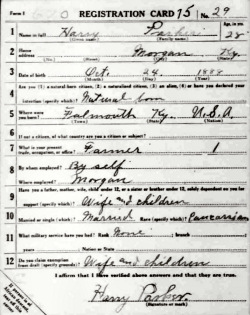 Form 1 REGISTRATION CARD 75 No. 29
1 Name in full Harry Parker Age, in yrs. 28
(Given name) (Family name)
2 Home address Morgan Ky.
3 Date of birth Oct. 24 1888
(Month) (Day) (Year)
4 Are you (1) a natural-born citizen, (2) a naturalized citizen, (3) an alien, (4) or have you declared your
intention (specify which)? Natural born
5 Where were you born? Falmouth Ky. U.S.A.
(Town) (State) (Nation)
6 If not a citizen, of what country are you a citizen or subject?
7 What is your present trade, occupation, or office? Farmer 1
8 By whom employed? By self
Where employed? Morgan
9 Have you a father, mother, wife, child under 12, or a sister or brother under 12, solely dependent on you for
support (specify which)? Wife and children
10 Married or single (which)? Married Race (specify which)? Caucasian
11 What military service have you had? Rank None ; branch
years ; Nation or State
12 Do you claim exemption from draft (specify grounds)? Wife and children
I affirm that I have verified above answers and that they are true.
Harry Parker.
(Signature or mark)